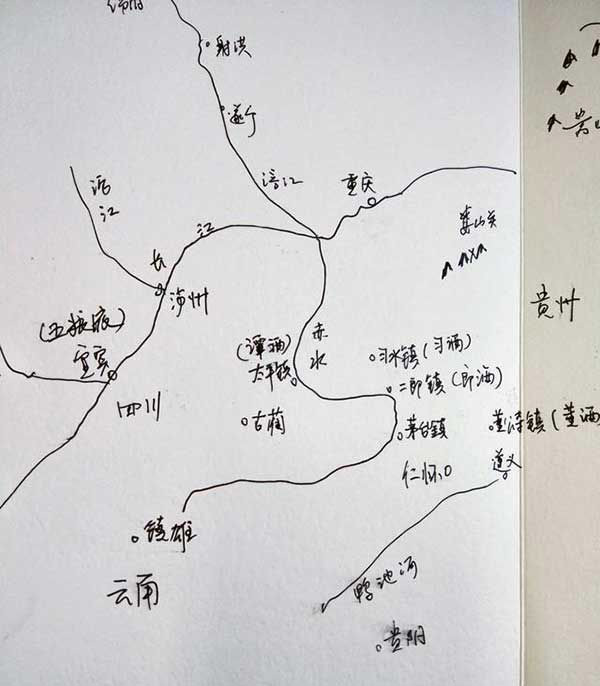 射洪
遂宁
涪江
重庆
沱江
娄山关
长江
泸州
贵州
(五粮液)
宜宾
赤水
(潭酒)
太平镇
习水镇(习酒)
二郎镇(郎酒)
四川
古蔺
茅台鎮
董公寺镇(董酒
遵义
仁怀
镇雄
云南
鸭池河
贵阳